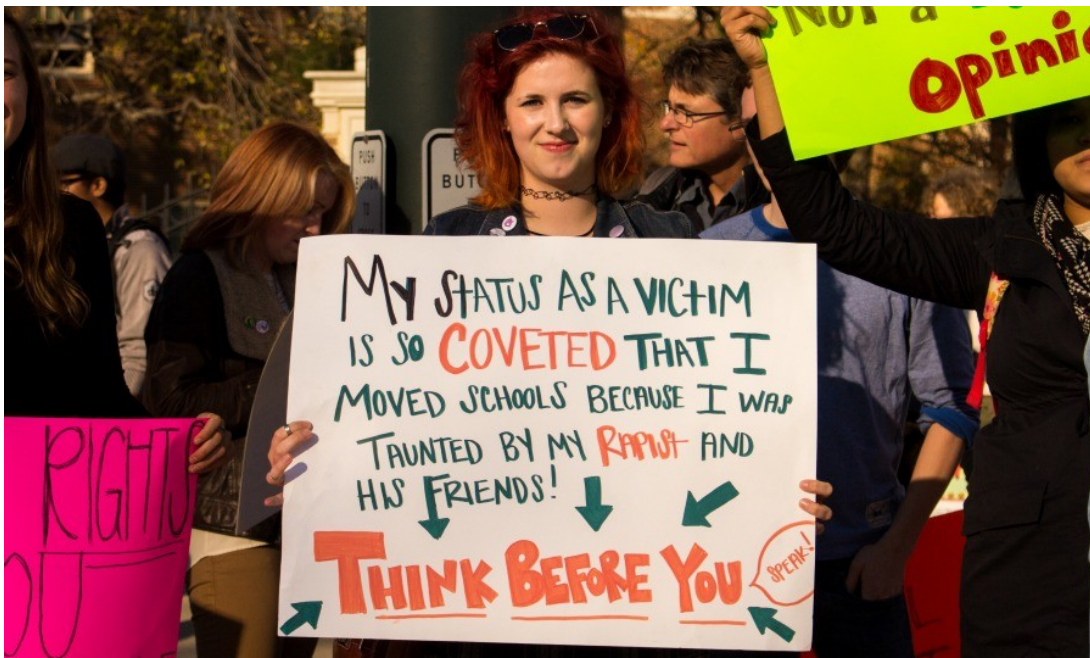 Not a
Opinio
PUSH
BUTTON
TO
BUT
MY STATUS AS A VICTIM
IS SO COVETED THAT I
MOVED SCHOOLS BECAUSE I WAS
TAUNTED BY MY RAPIST AND
HIS FRIENDS!
THINK BEFORE YOU
SPEAK!
RIGHTS
OU